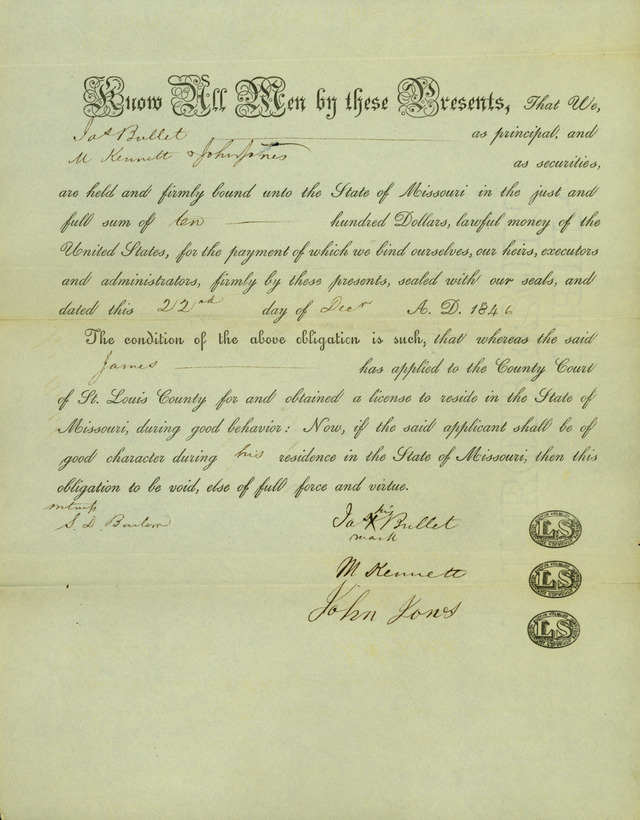 Know All Men by these Presents, That We,
Jas Bullet as principal, and
M Kennett & John Jones
as securities,
are held and firmly bound unto the State of Missouri in the just and
full sum of ten hundred Dollars, lawful money of the
United States, for the payment of which we bind ourselves, our heirs, executors
and administrators, firmly by these presents, sealed with our seals, and
dated this 22nd day of Decr A. D. 1846
The condition of the above obligation is such, that whereas the said
James has applied to the County Court
of St. Louis County for and obtained a license to reside in the State of
Missouri, during good behavior: Now, if the said applicant shall be of
good character during his residence in the State of Missouri, then this
obligation to be void, else of full force and virtue.
witness
S. D. Barlow
his
Jas X Bullet
mark
LS
M Kennett
LS
John Jones
LS